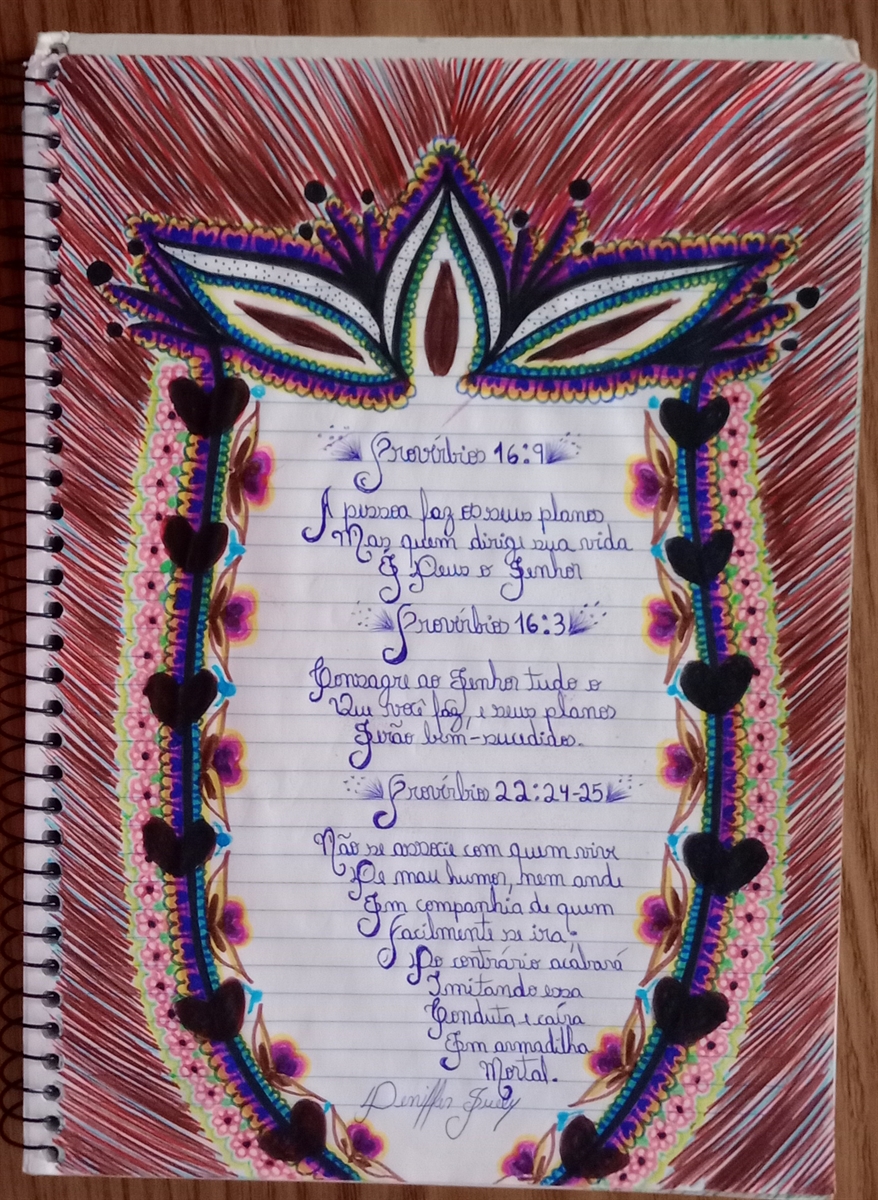 Provérbios 16:9
A pessoa faz os seus planos
Mas quem dirige sua vida
É Deus o Senhor
Provérbios 16:3
Consagre ao Senhor tudo o
Que você faz, e seus planos
Serão bem-sucedidos.
Provérbios 22:24-25
Não se associe com quem vive
De mau humor, nem ande
Em companhia de quem
facilmente se ira.
Do contrário acabará
Imitando essa
Conduta e caíra
Em armadilha
Mortal.